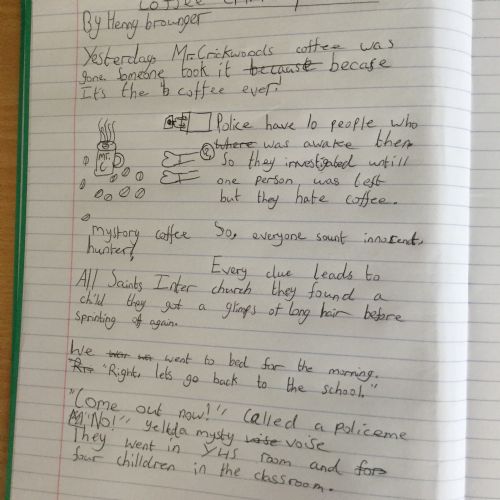 Coffee
By Henry brounger
Yesterday Mr.Crickwoods coffee was
gone someone took it because becase
It's the b coffee ever!
MR. C
Police have 10 people who
where was awake then
So they investigated untill
one person was left
but they hate coffee.
mystory coffee So, everyone sount innocent.
hunter!
Every clue leads to
All Saints Inter church they found a
child they got a glimps of long hair before
sprinting of again.
We went to bed for the morning.
"Right, lets go back to the school."
"Come out now!" called a policeme
"No!" yelda mysty voise voise
They went in YHS room and for
four chilldren in the classroom.